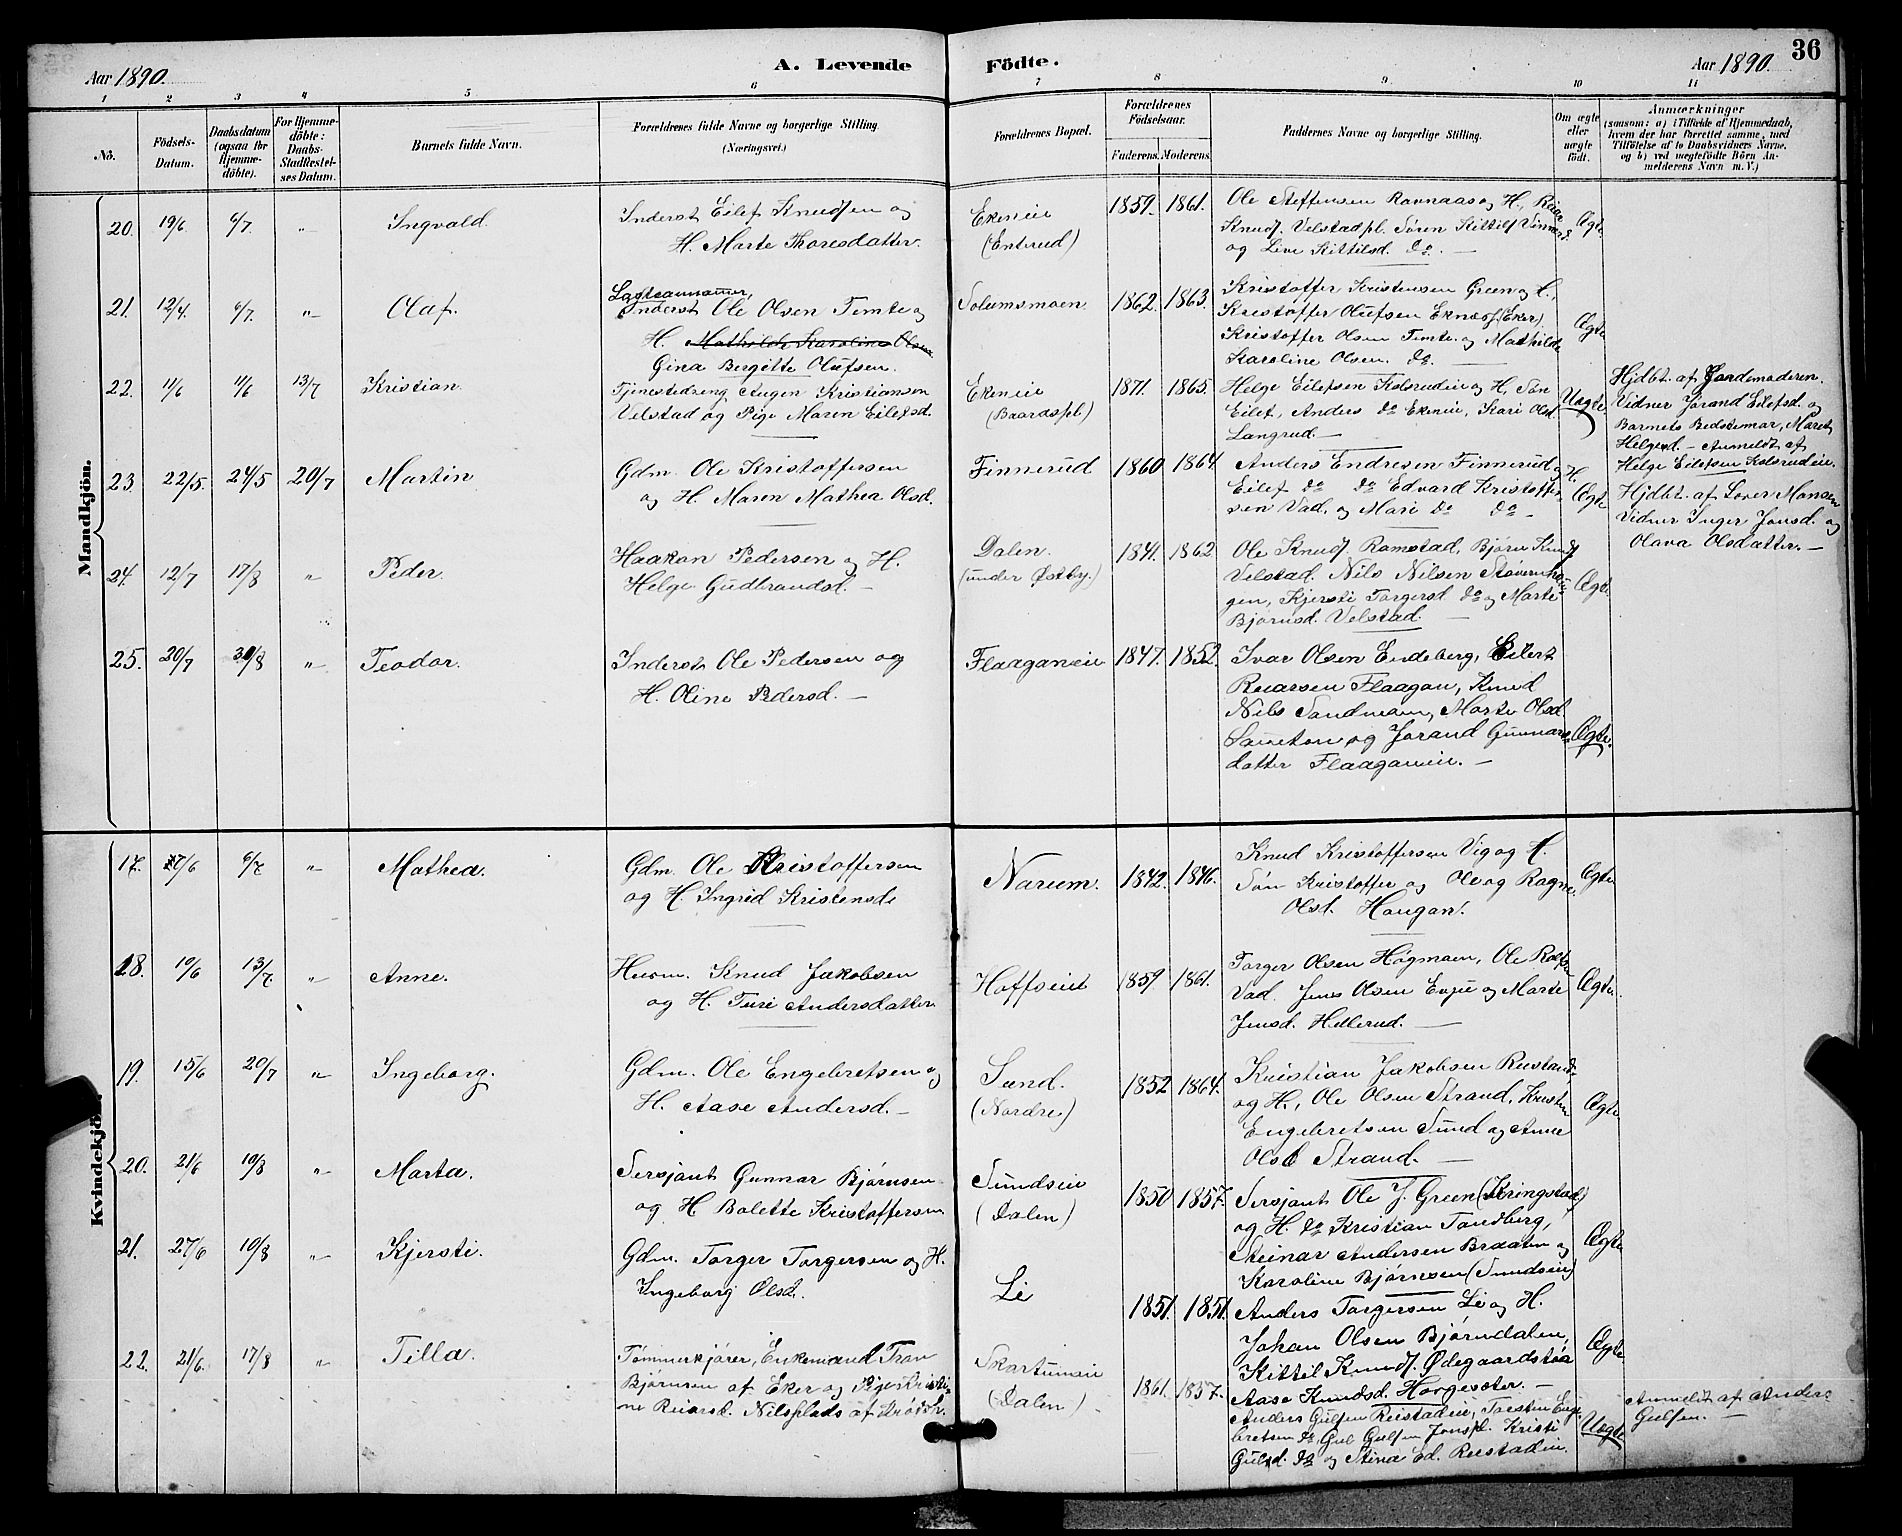 Aar 1890. A. Levende Födte. Aar 1890. 36
1 2 3 4 5 6 7 8 9 10 11
No.
Födsels-Datum.
Daabsdatum (ogsaa for Hjemmedöbte).
For Hjemmedöbte: Daabs-Stadfæstelses Datum.
Barnets fulde Navn.
Forældrenes fulde Navne og borgerlige Stilling.
(Næringsvei.)
Forældrenes Bopæl.
Forældrenes Födselsaar.
Faderens. Moderens.
Faddernes Navne og borgerlige Stilling.
Om ægte eller uægte födt.
Anmærkninger
(saasom: a) i Tilfælde af Hjemmedaab,
hvem der har forrettet samme, med
Tilföielse af to Daabsvidners Navne,
og b) ved uægtefödte Börn Anmelderens Navn m. V.)
Mandkjön.
20. 19/6 6/7 " Ingvald.
Inderst Eilef Knudsen og
H. Marte Thoresdatter.
Ekeneie
(Enterud)
1859. 1861.
Ole Steffensen Ravnaas og H.,
Knuds. Velstadpl. Søren Kittils
og Live Kittilsd. do. —
Ægte.
21. 12/4. 6/7. " Olaf.
Inderst Ole Olsen Temte og
H. Mathilde Karoline Olsen
Gina Bergitte Olufsen.
Solumsmoen.
1862. 1863.
Kristoffer Kristensen Green og H.,
Kristoffer Olufsen Eknæs (Eker)
Kristoffer Olsen Temte og Mathilde
Karoline Olsen. do.
Ægte
22. 11/6 11/6 13/7 Kristian.
Tjenestedreng August Kristiansen
Velstad og Pige Maren Eilefsd.
Ekeneie
(Baardspl.)
1871. 1865.
Helge Eilefsen Kolsrudeie og H. Søn
Eilef, Anders do Ekeneie, Kari Olsd.
Langrud. —
Uægte.
Hjdbt. af Jordemoderen.
Vidner Jørand Eilefsd. og
Barnets Bedstemor, Marit
Helgesd. — Anmeldt af
Helge Eilefsen Kolsrudeie.
23. 22/5. 24/5 20/7 Martin.
Gdm. Ole Kristoffersen
og H. Maren Mathea Olsd.
Finnerud
1860 1864.
Anders Endresen Finnerud og H.
Eilef do do Edvard Kristoffersen
Vad. og Mari do do —
Ægte
Hjdbt. af Lover Mansen
Vidner Inger Jonsd. og
Olava Olsdatter. —
24. 12/7 17/8 " Peder.
Haakon Pedersen og H.
Helge Gudbrandsd. —
Dalen.
(under Østby.)
1841. 1862
Ole Knuds. Ramstad, Bjørn Knuds.
Velstad. Nils Nilsen
gen, Kjersti Torgersd. do og Marte
Bjørnsd. Velstad.
Ægte.
25. 20/7 31/8 " Teodor.
Inderst Ole Pedersen og
H. Oline Pedersd. —
Flaaganeie
1847. 1852.
Ivar Olsen Endeberg, Eilert
Ruarsen Flaagan, Knud
Nils Sandmoen, Marte Olsd.
og Jørand Gunnars-
datter Flaaganeie. —
Ægte.
Kvindekjön.
17. 27/6 6/7 " Mathea.
Gdm. Ole Kristoffersen
og H. Ingrid Kristensd.
Narum.
1842. 1846.
Knud Kristoffersen Vig og H.
Søn Kristoffer og Ole og Ragne
Olsd. Haugan.
Ægte
18. 10/6 13/7. " Anne.
Husm. Knud Jakobsen
og H. Turi Andersdatter
Hoffseie
1859 1861.
Torger Olsen Høgmoen, Ole Rolfsen
Vad. Jens Olsen Evju og Marte
Jensd. Hellerud. —
Ægte.
19. 15/6 20/7 " Ingeborg.
Gdm. Ole Engebretsen og
H. Aase Andersd. —
Sund.
(Nordre)
1852 1864.
Kristian Jakobsen Rustand
og H., Ole Olsen Strand, Kristen
Engebretsen Sund og Anne
Olsd Strand. —
Ægte
20. 21/6 10/8 " Marta.
Sersjant Gunnar Bjørnsen
og H Bolette Kristoffersen
Sundseie
(Dalen)
1850 1857.
Sersjant Ole J. Green (Kringstad)
og H. do Kristian Tandberg,
Steinar Andersen Braaten og
Karoline Bjørnsen (Sundseie)
Ægte
21. 27/6 10/8 " Kjersti.
Gdm. Torger Torgersen og H.
Ingeborg Olsd.
Li
1851. 1851.
Anders Torgersen Li og H.
Johan Olsen Bjørndalen,
Kittil Knuds. Ødegaardstøa
Aase Knudsd. Horgeseter. —
Ægte
22. 21/6. 17/8 " Tilla.
Tømmerkjører, Enkemand Tran
Bjørnsen af Eker og Pige Kristi-
ne Ruarsd. Nilsplads af Krødsh.
Skartumeie
(Dalen)
1861. 1857.
Anders Gulsen Rustadeie, Torsten Enge-
bretsen do, Gul Gulsen Jonspl. Kristi
Gulsd. do og Stina Ed. Rustadeie.
Uægte
Anmeldt af Anders
Gulsen. —